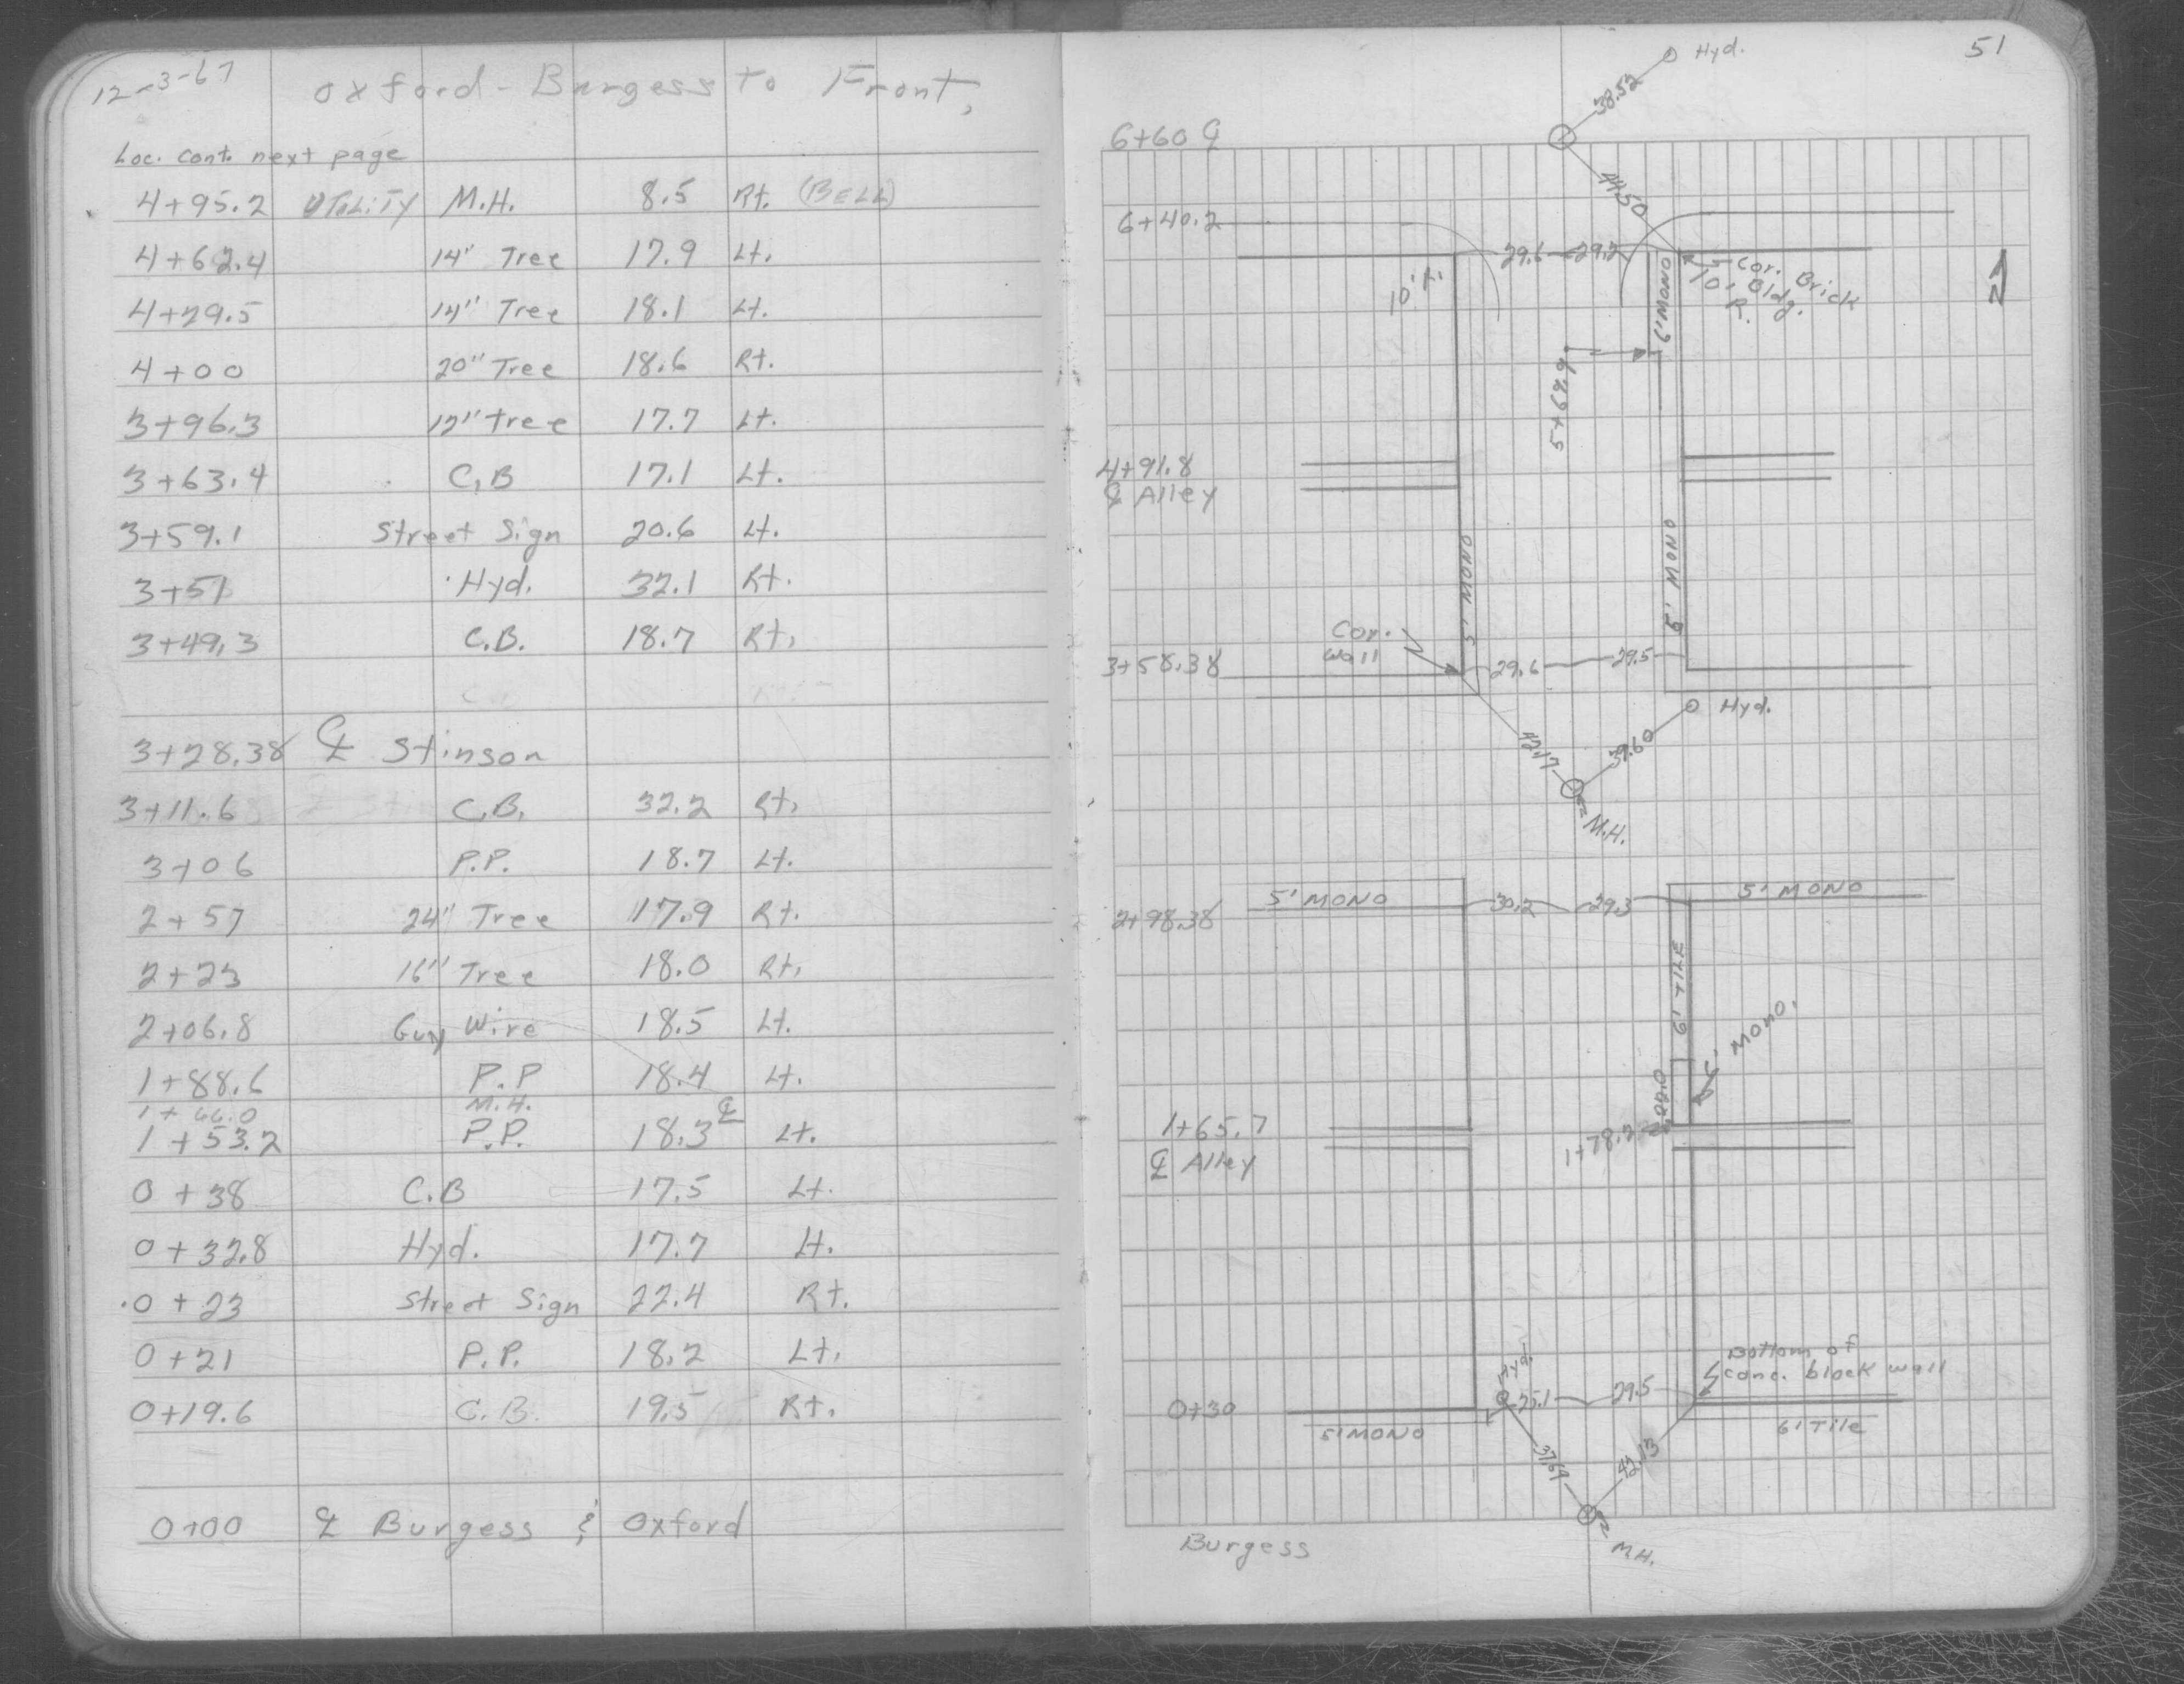 12-3-67
Oxford - Burgess to Front.
Loc. cont. next page
4+95.2 UTILITY M.H. 8.5 Rt. (BELL)
4+62.4 14" Tree 17.9 Lt.
4+29.5 14" Tree 18.1 Lt.
4+00 20" Tree 18.6 Rt.
3+96.3 12" tree 17.7 Lt.
3+63.4 C.B 17.1 Lt.
3+59.1 Street Sign 20.6 Lt.
3+51 Hyd. 32.1 Rt.
3+49.3 C.B. 18.7 Rt.
3+28.38 ℄ Stinson
3+11.6 C.B. 32.2 Rt.
3+06 P.P. 18.7 Lt.
2+57 24" Tree 17.9 Rt.
2+23 16" Tree 18.0 Rt.
2+06.8 Guy Wire 18.5 Lt.
1+88.6 P.P 18.4 Lt.
1+66.0 M.H. ℄
1+53.2 P.P. 18.3 Lt.
0+38 C.B 17.5 Lt.
0+32.8 Hyd. 17.7 Lt.
0+23 Street Sign 22.4 Rt.
0+21 P.P. 18.2 Lt.
0+19.6 C.B. 19.5 Rt.
0+00 ℄ Burgess & Oxford
51
Hyd.
38.52
6+60 ℄
44.50
6+40.2
29.6 29.2
10' R.
6' MONO
Cor. Brick
Bldg.
10' R.
5+69.9
4+91.8
℄ Alley
5' MONO
6' MONO
Cor.
Wall
3+58.38
29.6 29.5
Hyd.
42.17
39.60
M.H.
5' MONO
30.2 29.3
5' MONO
2+98.38
6' TILE
6' Mono.
1+65.7
℄ Alley
1+78.2
Hyd.
Bottom of
conc. block wall
0+30
25.1 29.5
5' MONO
6' Tile
37.69
42.13
M.H.
Burgess